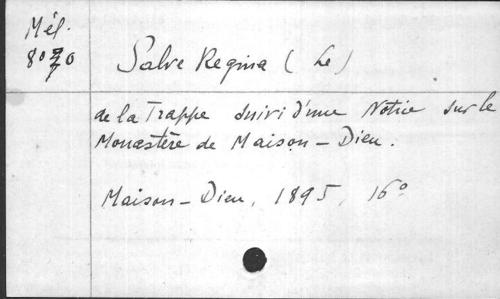 Mél.
8° 70
Salve Regina (Le)
de la Trappe suivi d'une Notice sur le
Monastère de Maison-Dieu.
Maison-Dieu, 1895, 16°